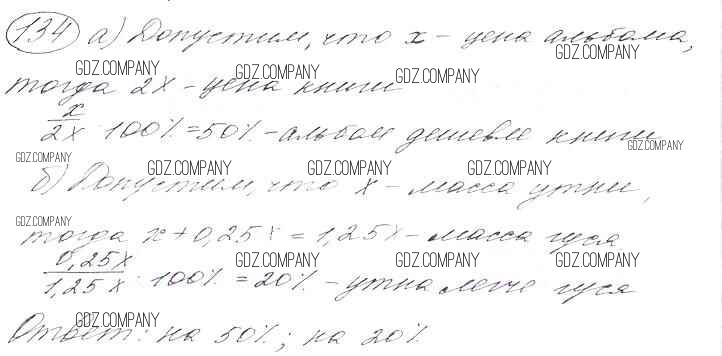 134 а) Допустим, что x - цена альбома,
GDZ.COMPANY
GDZ.COMPANY GDZ.COMPANY GDZ.COMPANY
тогда 2x - цена книги
x/2x · 100% = 50% - альбом дешевле книги
GDZ.COMPANY
GDZ.COMPANY GDZ.COMPANY GDZ.COMPANY GDZ.COMPANY
б) Допустим, что x - масса утки,
GDZ.COMPANY
тогда x + 0,25x = 1,25x - масса гуся
GDZ.COMPANY GDZ.COMPANY GDZ.COMPANY
0,25x/1,25x · 100% = 20% - утка легче гуся
GDZ.COMPANY
Ответ: на 50%; на 20%